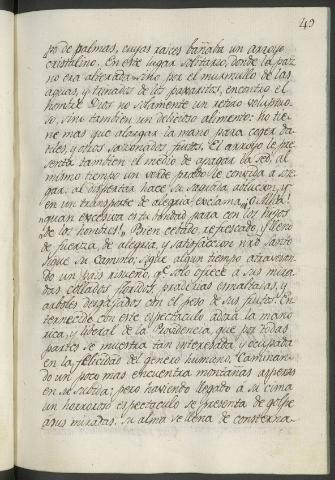 49
po de palmas, cuyas raices bañaba un arroyo
cristalino. En este lugar solitario, donde la paz
no era alterada sino por el murmullo de las
aguas, y trinados de los paxaritos, encontró el
hombre Dios no solamente un retiro voluptuo-
so, sino tambien un delicioso alimento: no tie-
ne mas que alargar la mano para coger da-
tiles, y otros sazonados frutos. El arroyo le pre-
senta tambien el medio de apagar la sed, al
mismo tiempo un verde prado le convida a sose-
gar. al dispertar hace su segunda ablucion, y
en un transporte de alegria exclama, "O Alha!
"quan excesiva es tu bondad para con los hijos
"de los hombres!" Bien cebado, refrescado, y lleno
de fuerza, de alegria, y satisfaccion nro Santo
sigue su camino; sigue algun tiempo atravesan-
do un pais risueño, qe. solo ofrece a sus mira-
das collados floridos, praderias esmaltadas, y
arboles desgajados con el peso de sus frutos. En-
ternecido con este espectaculo adora la mano
rica, y liberal de la Providencia, que por todas
partes se muestra tan interesada y ocupada
en la felicidad del genero humano. Caminan-
do un poco mas encuentra montañas asperas
en su subida; pero haviendo llegado a su cima
un horroroso espectaculo se presenta de golpe
a sus miradas. Su alma se llena de consterna-